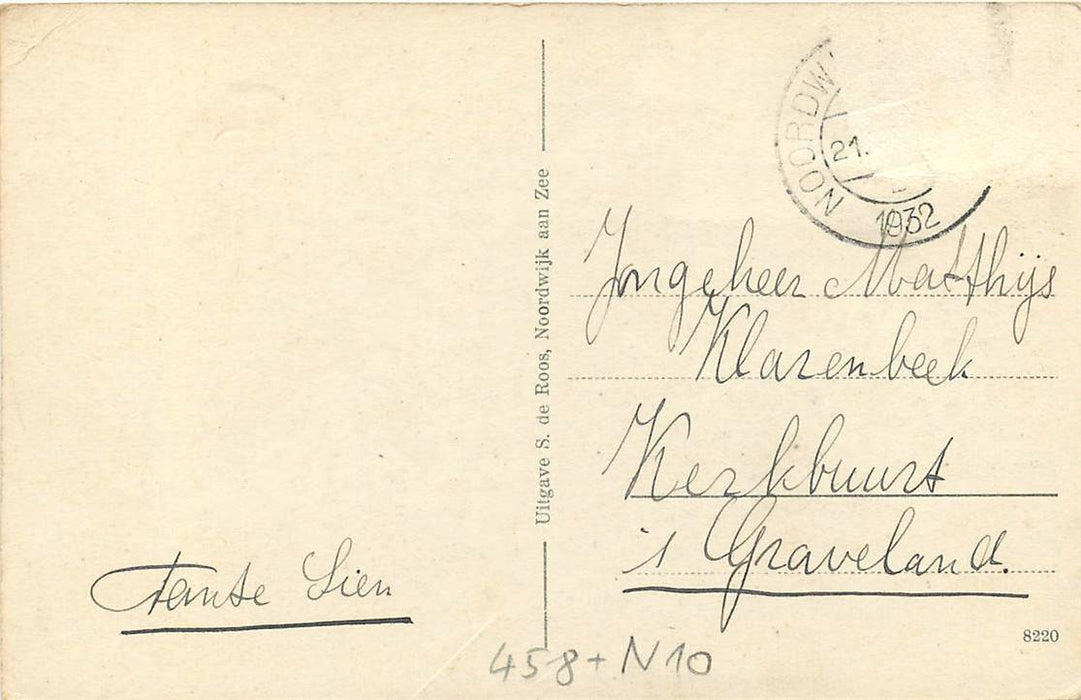 NOORDW
21.
1932
Jongeheer Matthijs
Klarenbeek
Kerkbuurt
's Graveland.
Tante Lien
Uitgave S. de Roos, Noordwijk aan Zee
8220
458+ N10